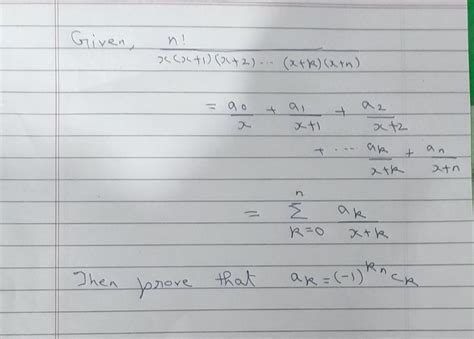 Given, n!
x(x+1)(x+2)... (x+k)(x+n)
= a₀/x + a₁/x+1 + a₂/x+2
+ ... aₖ/x+k + aₙ/x+n
= Σ aₖ/x+k
n
k=0
Then prove that aₖ = (-1)ᵏ ⁿcₖ